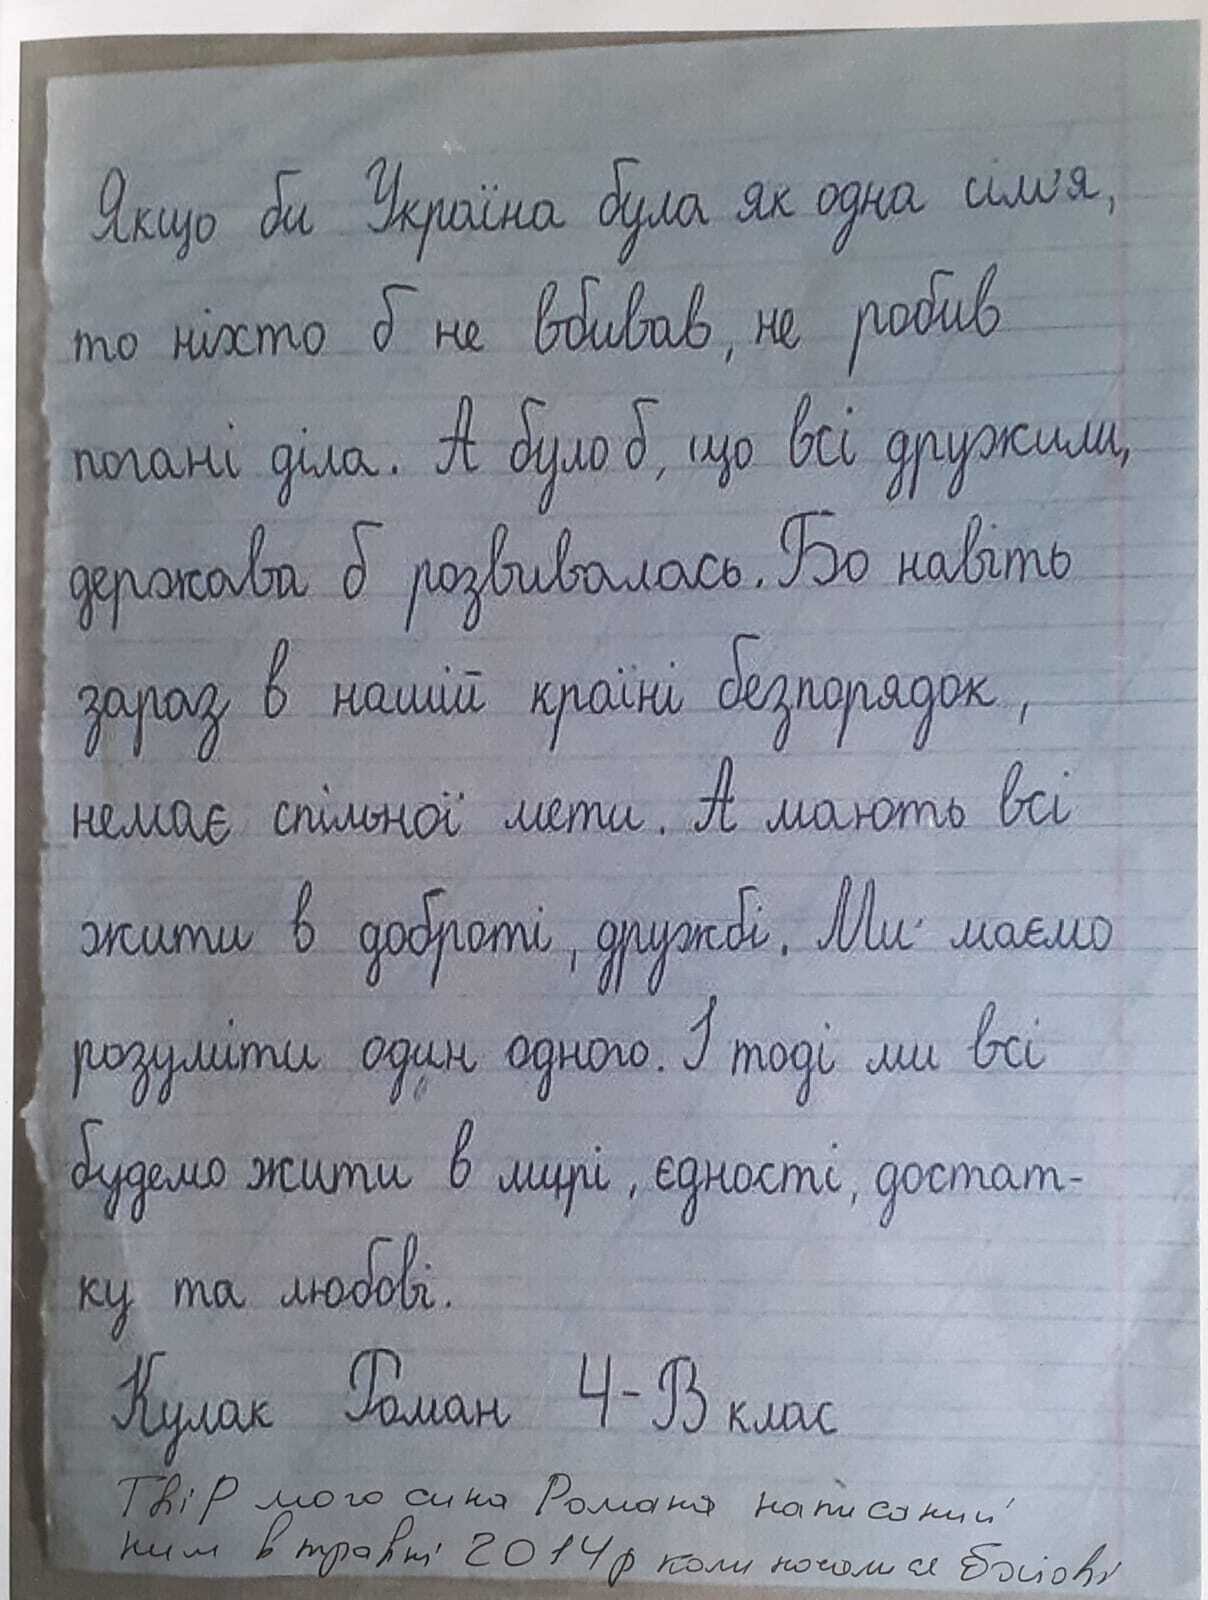 Якщо би Україна була як одна сім'я,
то ніхто б не вбивав, не робив
погані діла. А було б, що всі дружили,
держава б розвивалась. Бо навіть
зараз в нашій країні безпорядок,
немає спільної мети. А мають всі
жити в доброті, дружбі. Ми маємо
розуміти один одного. І тоді ми всі
будемо жити в мирі, єдності, достат-
ку та любові.
Кулак Роман 4-В клас
Твір мого сина Романа написаний
ним в травні 2014р коли почалися бойові